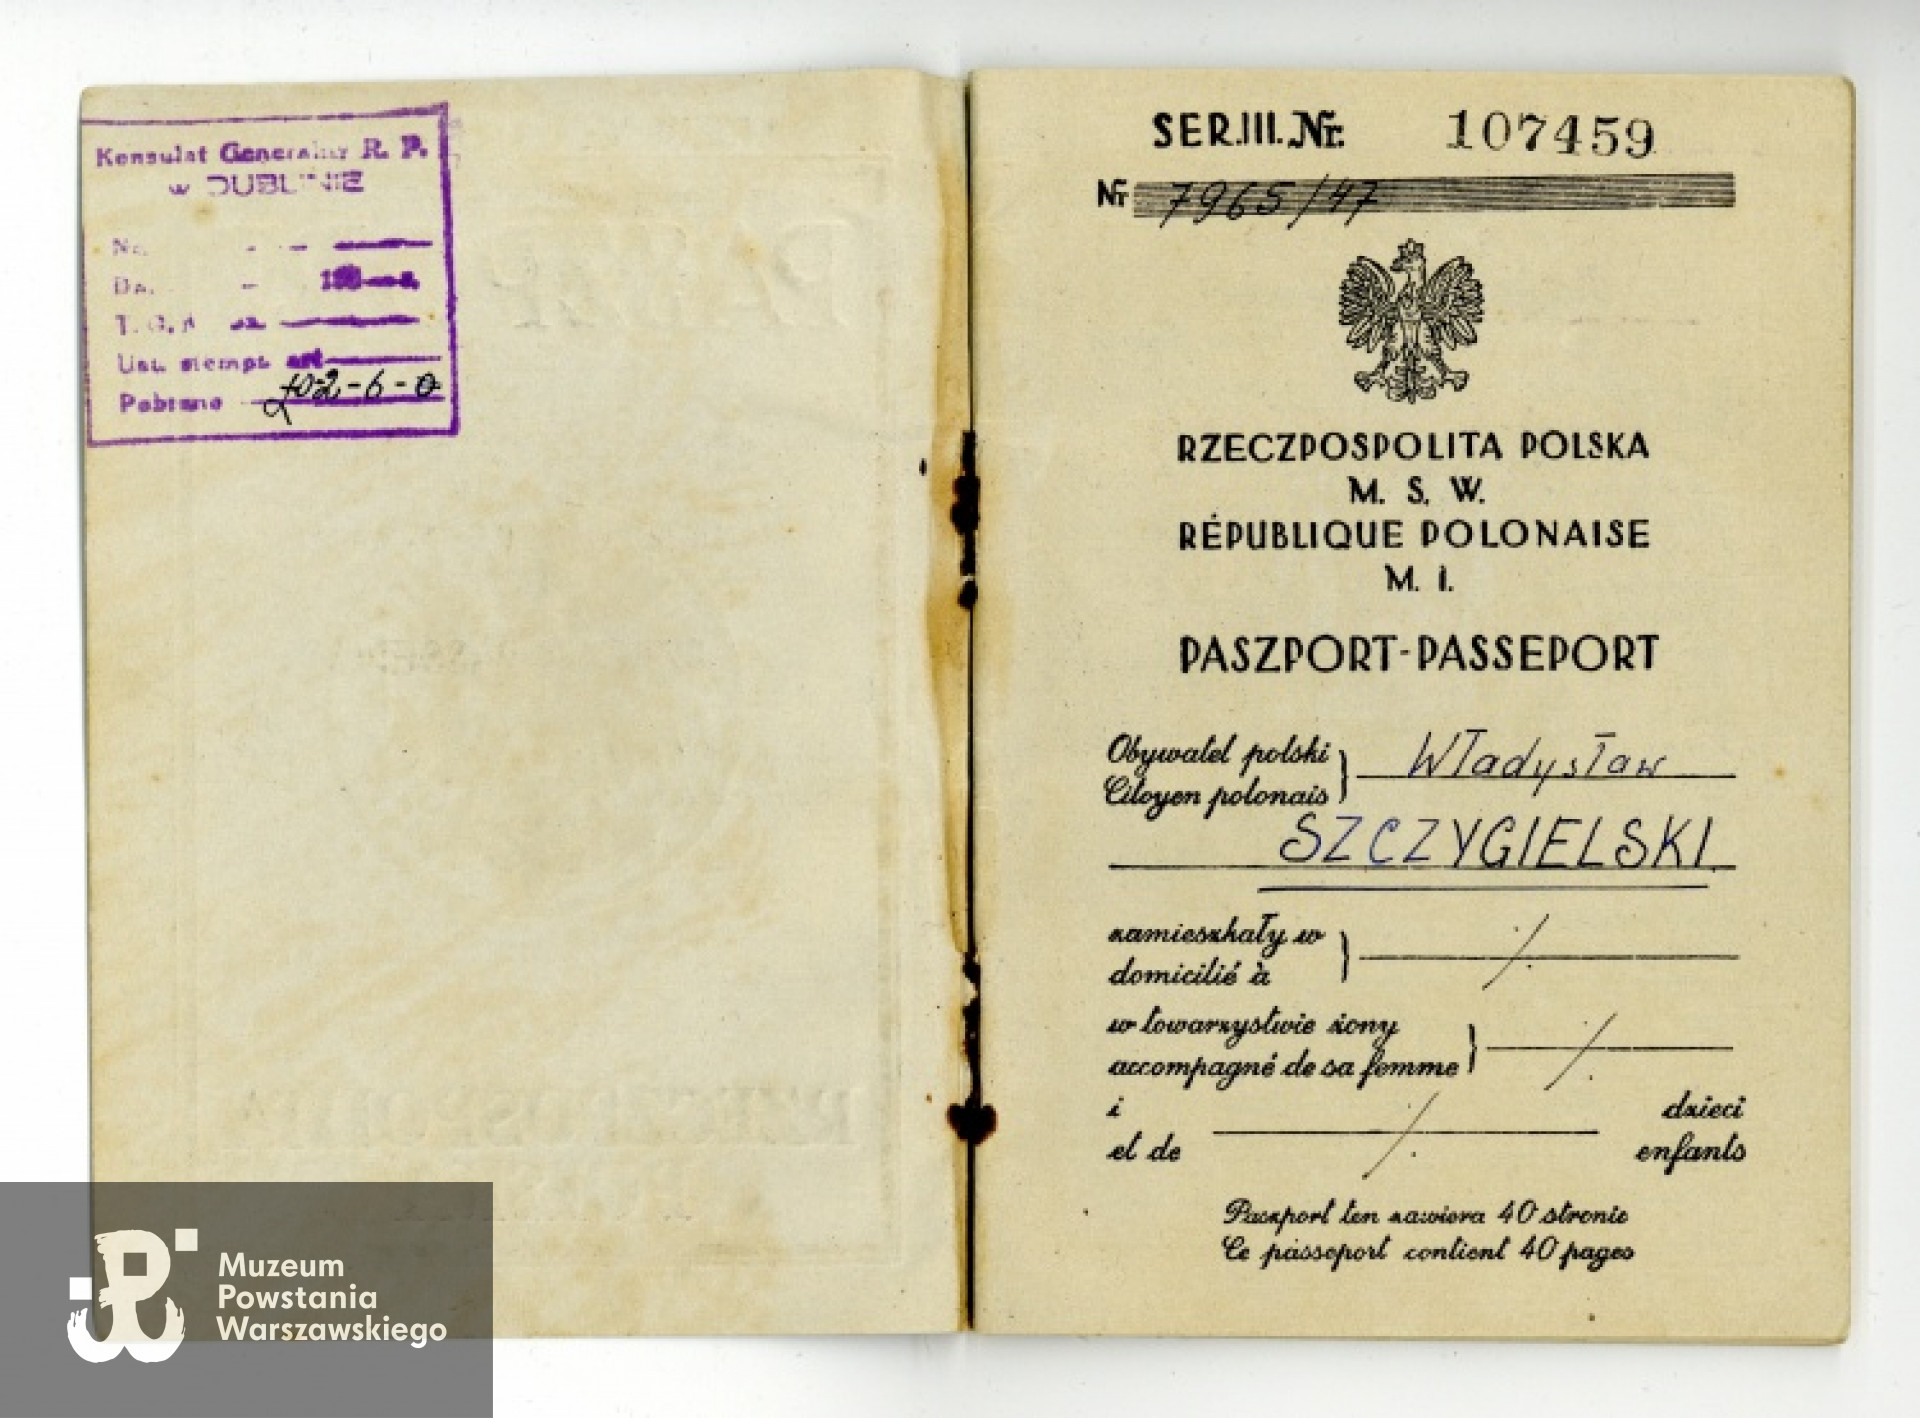 Konsulat Generalny R. P.
w DUBLINIE
Ust. stempl. art
Pobrano 2-6-0
SER.III. Nr. 107459
Nr 7965/47
RZECZPOSPOLITA POLSKA
M. S. W.
RÉPUBLIQUE POLONAISE
M. I.
PASZPORT-PASSEPORT
Obywatel polski
Citoyen polonais
Władysław
SZCZYGIELSKI
zamieszkały w
domicilié à
w towarzystwie żony
accompagné de sa femme
i dzieci
et de enfants
Paszport ten zawiera 40 stronic
Ce passeport contient 40 pages
Muzeum
Powstania
Warszawskiego